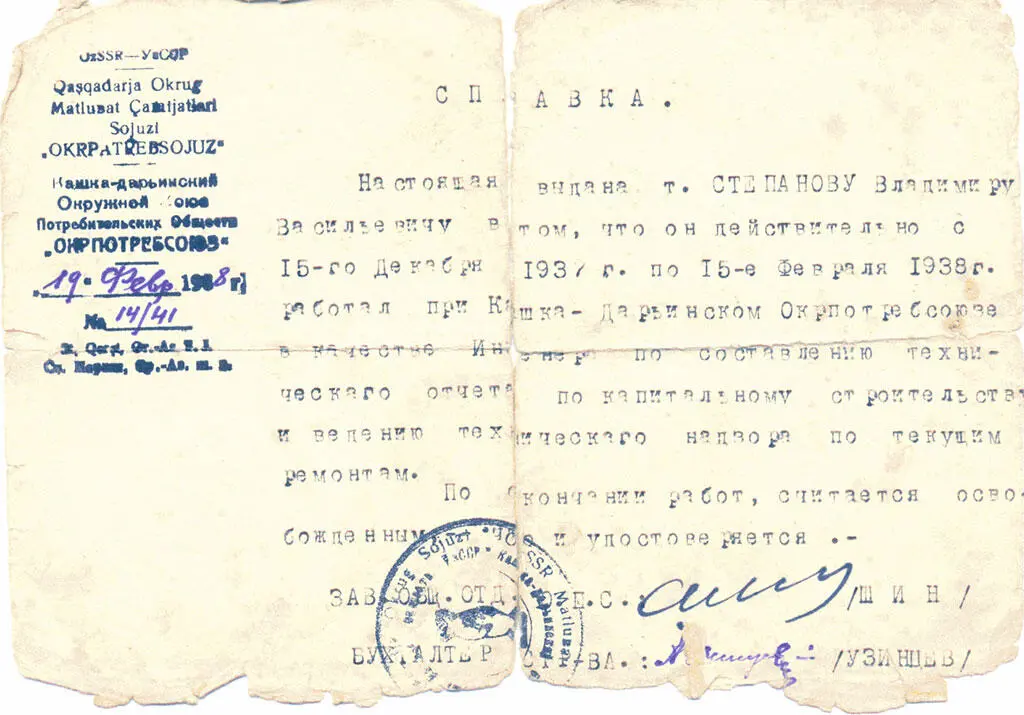 UzSSR—УзССР
Qaşqadarja Okrug
Matlubat Çamьjatlari
Sojuzi
„OKRPATREBSOJUZ“
Кашка-дарьинский
Окружной Союз
Потребительских Обществ
„ОКРПОТРЕБСОЮЗ“
„19“ Февр 1938 г.
№ 14/41
СПРАВКА.
Настоящая выдана т. СТЕПАНОВУ Владимиру
Васильевичу в том, что он действительно с
15-го Декабря 1937 г. по 15-е Февраля 1938г.
работал при Кашка-Дарьинском Окрпотребсоюзе
в качестве Инженера по составлению техни-
ческаго отчета по капитальному строительству
и ведению техническаго надзора по текущим
ремонтам.
По окончании работ, считается осво-
божденным что и удостоверяется .-
ЗАВ.ОБЩ.ОТД. О.П.С. /ШИН/
БУХГАЛТЕР СТ-ВА.: /УЗИНЦЕВ/
Okrug Sojuzi UzSSR Matlubat
УзССР Кашка-Дарьинский